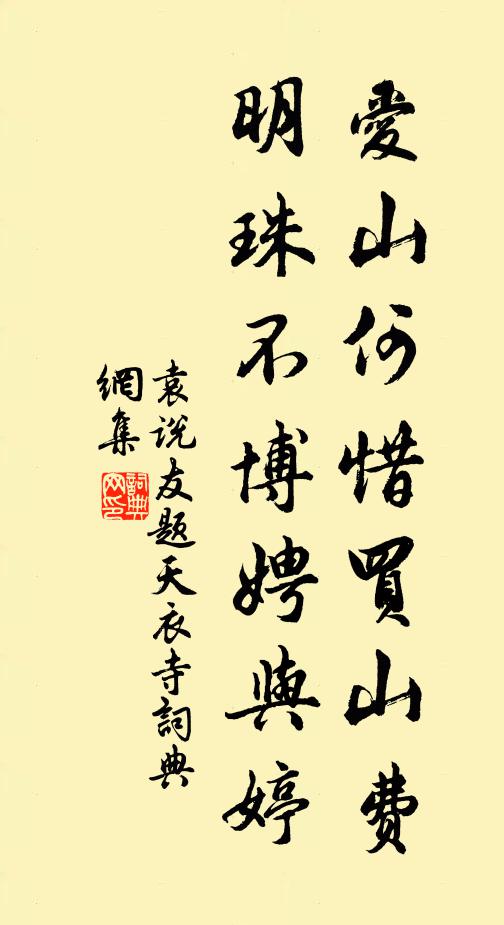 愛山何惜買山費
明珠不博娉與婷
袁說友題天衣寺詞典
網集
詞典
网印